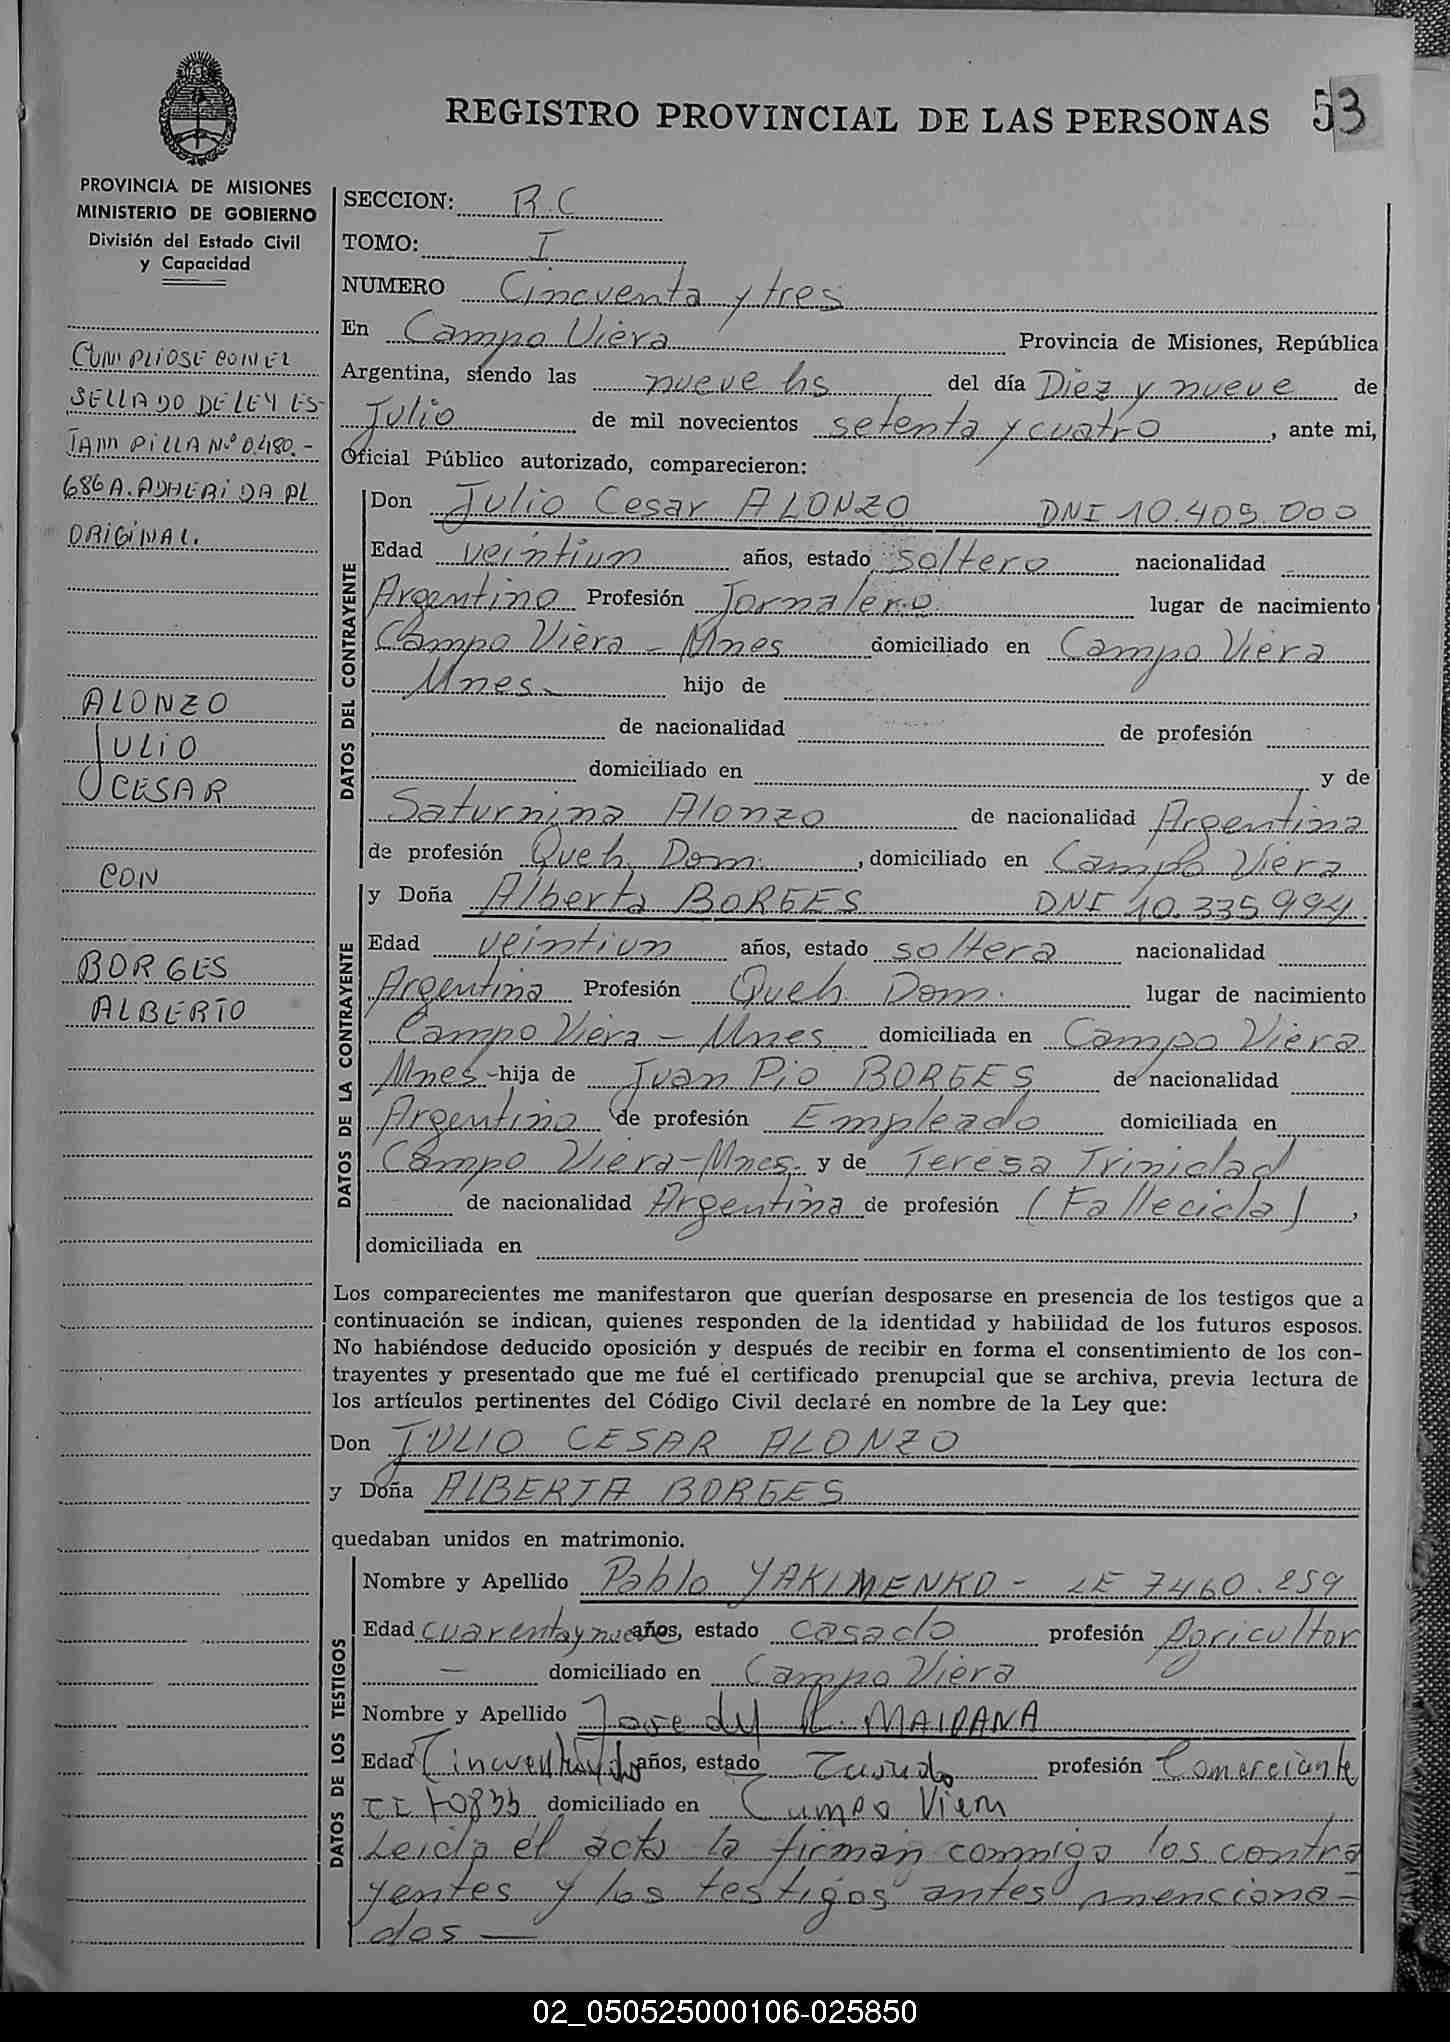 REGISTRO PROVINCIAL DE LAS PERSONAS 53
PROVINCIA DE MISIONES
MINISTERIO DE GOBIERNO
División del Estado Civil
y Capacidad
CUMPLIOSE CON EL
SELLADO DE LEY ES-
TAMPILLA Nº 0.480.-
686 A. ADHERIDA AL
ORIGINAL.
ALONZO
JULIO
CESAR
CON
BORGES
ALBERTO
SECCION: R.C
TOMO: I
NUMERO Cincuenta y tres
En Campo Viera Provincia de Misiones, República
Argentina, siendo las nueve hs del día Diez y nueve de
Julio de mil novecientos setenta y cuatro, ante mi,
Oficial Público autorizado, comparecieron:
DATOS DEL CONTRAYENTE
Don Julio Cesar ALONZO DNI 10.409.000
Edad veintiun años, estado soltero nacionalidad
Argentino Profesión Jornalero lugar de nacimiento
Campo Viera - Mnes domiciliado en Campo Viera
Mnes- hijo de
de nacionalidad de profesión
domiciliado en y de
Saturnina Alonzo de nacionalidad Argentina
de profesión Queh. Dom., domiciliado en Campo Viera
DATOS DE LA CONTRAYENTE
y Doña Alberta BORGES DNI 10.335.994.
Edad veintiun años, estado soltera nacionalidad
Argentina Profesión Queh. Dom. lugar de nacimiento
Campo Viera - Mnes. domiciliada en Campo Viera
Mnes- hija de Juan Pio BORGES de nacionalidad
Argentino de profesión Empleado domiciliada en
Campo Viera-Mnes. y de Teresa Trinidad
de nacionalidad Argentina de profesión (Fallecida),
domiciliada en
Los comparecientes me manifestaron que querían desposarse en presencia de los testigos que a
continuación se indican, quienes responden de la identidad y habilidad de los futuros esposos.
No habiéndose deducido oposición y después de recibir en forma el consentimiento de los con-
trayentes y presentado que me fué el certificado prenupcial que se archiva, previa lectura de
los artículos pertinentes del Código Civil declaré en nombre de la Ley que:
Don JULIO CESAR ALONZO
y Doña ALBERTA BORGES
quedaban unidos en matrimonio.
DATOS DE LOS TESTIGOS
Nombre y Apellido Pablo YAKIMENKO - LE 7460.259
Edad cuarenta y nueve años, estado casado profesión Agricultor
— domiciliado en Campo Viera
Nombre y Apellido Jose del R. MAIDANA
Edad años, estado Casado profesión Comerciante
domiciliado en Campo Viera
Leida el acta la firman conmigo los contra
yentes y los testigos antes menciona-
dos —
02_050525000106-025850